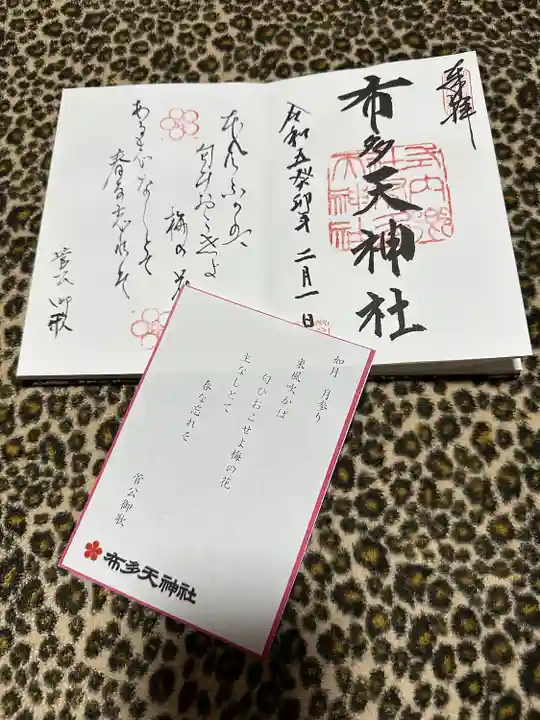 奉拝
布多天神社
令和五癸卯年二月一日
東風ふかば
匂ひおこせよ
梅の花
あるじなしとて
春な忘れそ
菅公御歌
如月 月参り
東風吹かば
匂ひおこせよ梅の花
主なしとて
春な忘れそ
菅公御歌
布多天神社